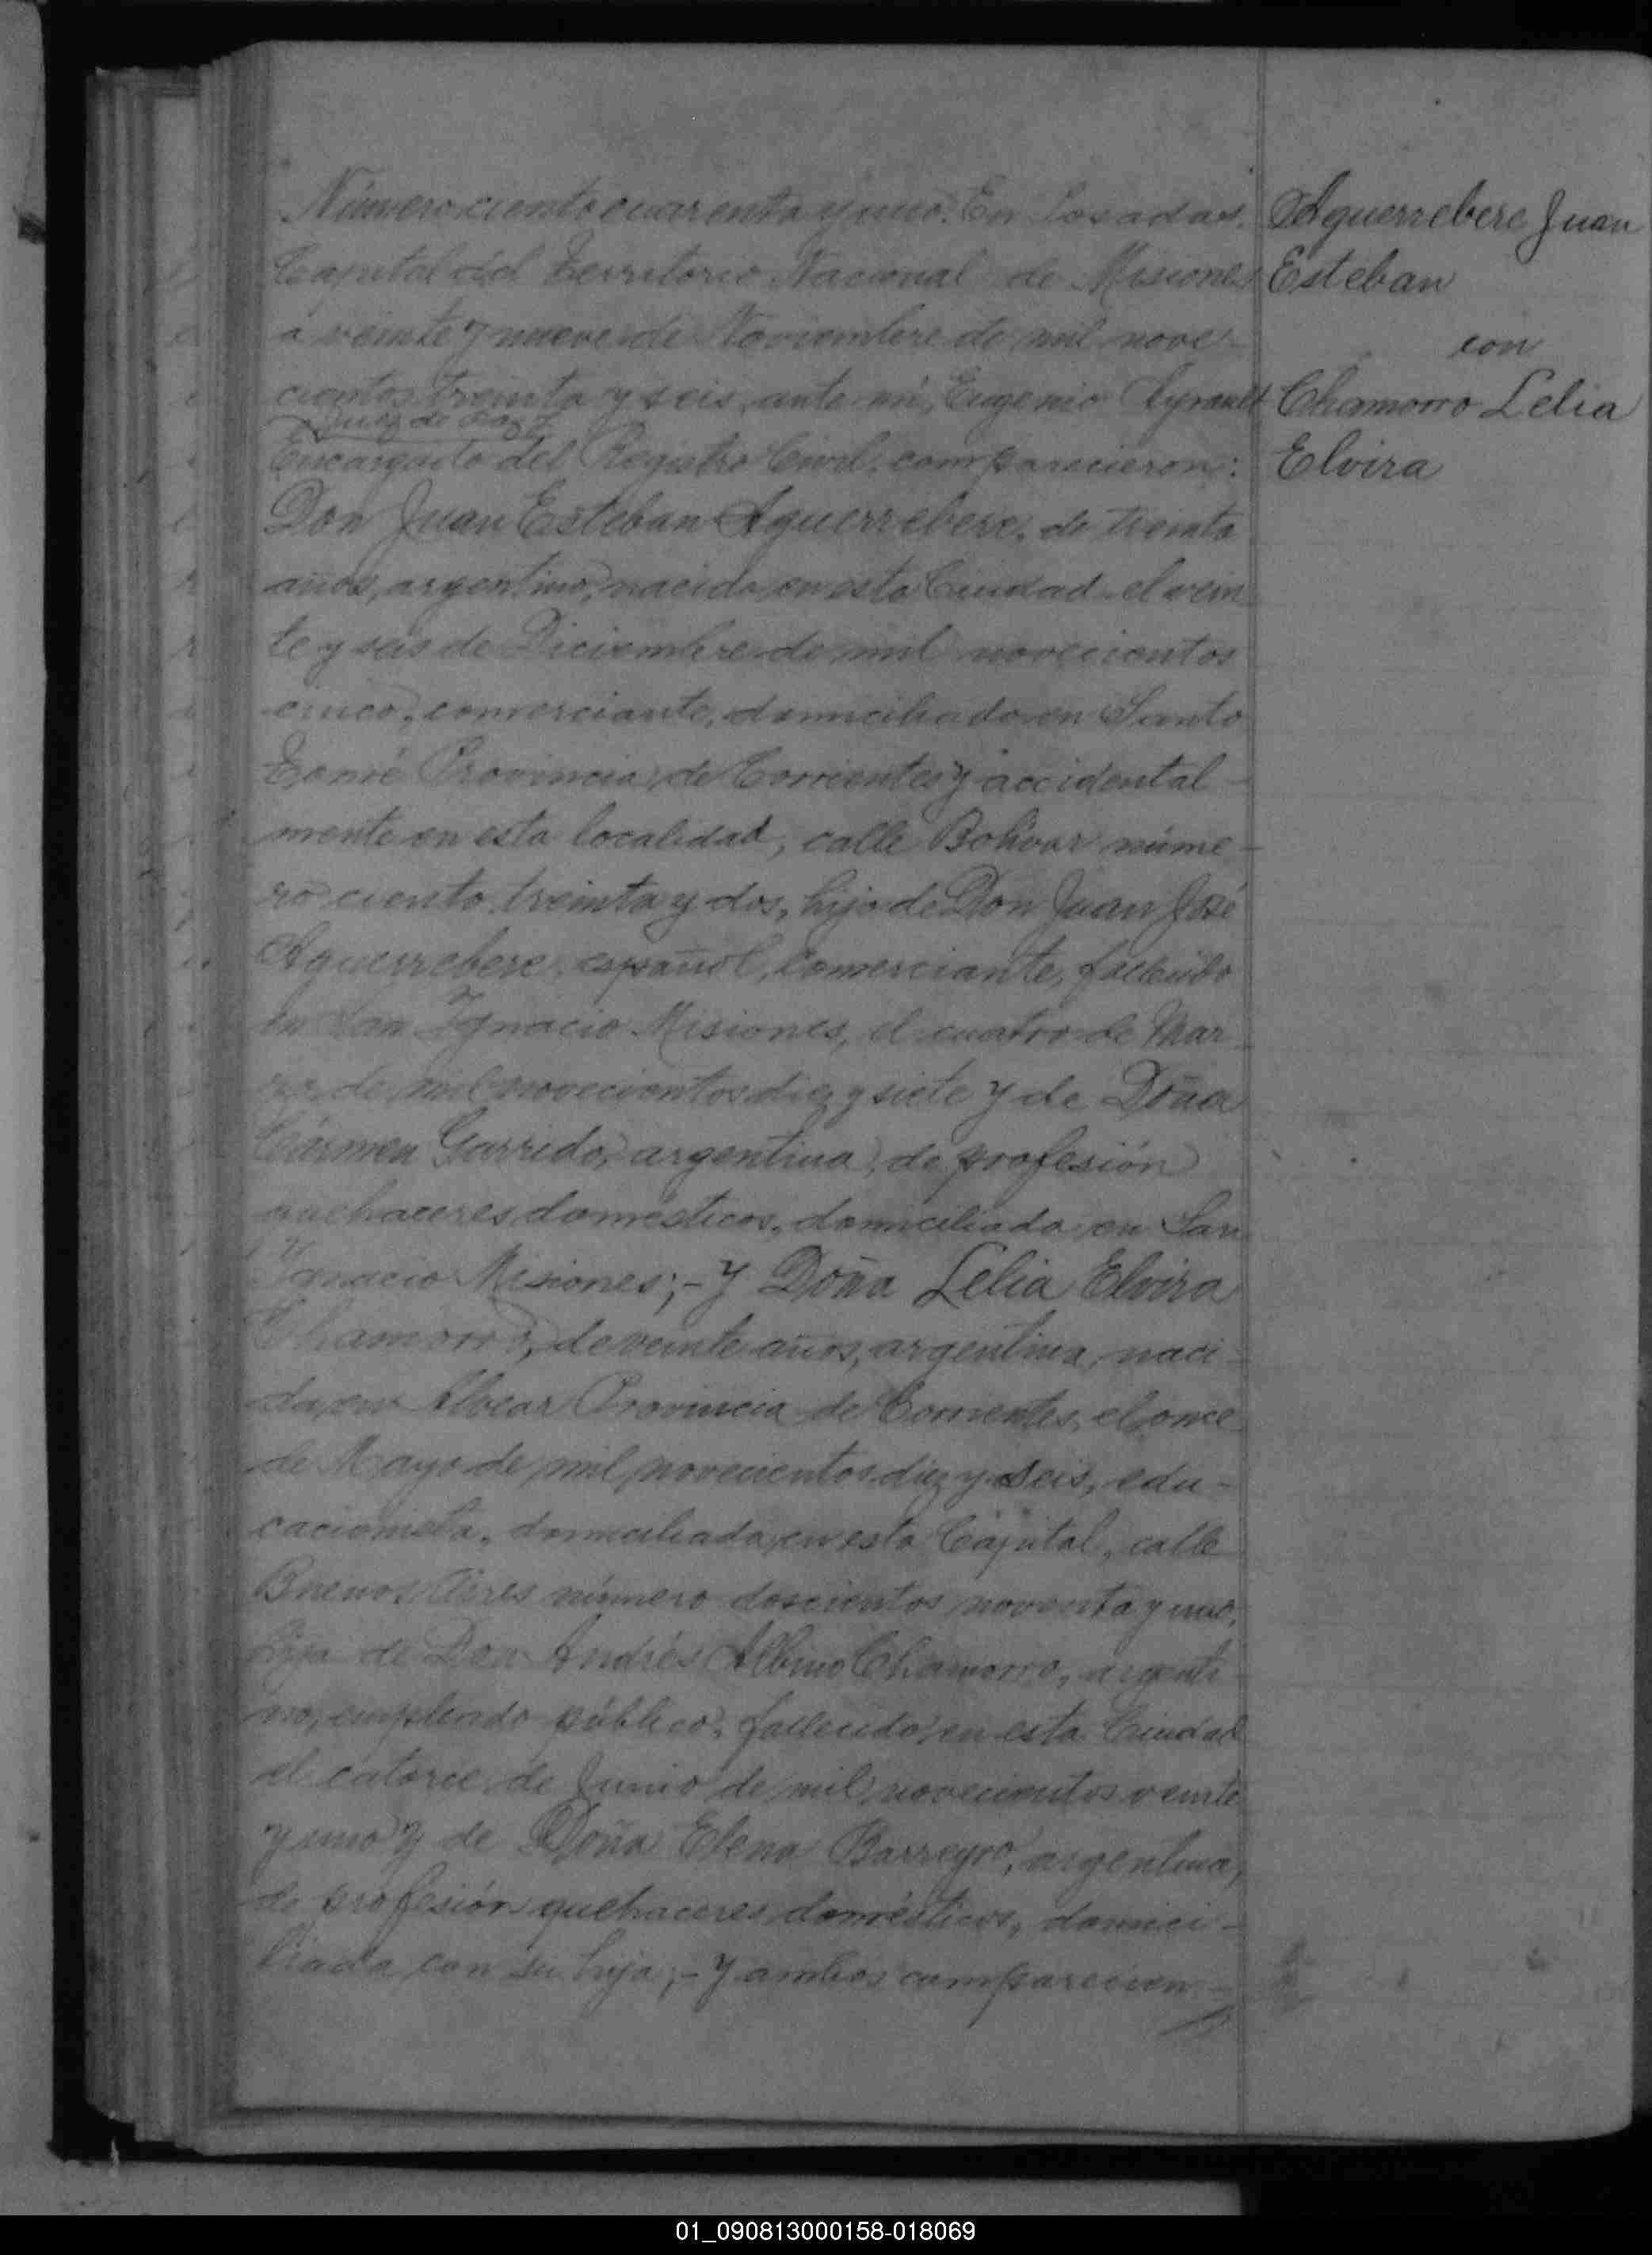 Número ciento cuarenta y uno. En Posadas,
Capital del Territorio Nacional de Misiones
a veinte y nueve de Noviembre de mil nove-
cientos treinta y seis, ante mí, Eugenio Ayrault
Juez de Paz y
Encargado del Registro Civil, comparecieron:
Don Juan Esteban Aguerrebere, de treinta
años, argentino, nacido en esta Ciudad el vein
te y seis de Diciembre de mil novecientos
cinco, comerciante, domiciliado en Santo
Tomé Provincia de Corrientes y accidental-
mente en esta localidad, calle Bolívar núme-
ro ciento treinta y dos, hijo de Don Juan José
Aguerrebere, español, comerciante, fallecido
en San Ignacio Misiones, el cuatro de Mar-
zo de mil novecientos diez y siete y de Doña
Cármen Garrido, argentina, de profesión
quehaceres domésticos, domiciliada en San
Ignacio Misiones;- y Doña Lelia Elvira
Chamorro, de veinte años, argentina, naci-
da en Alvear Provincia de Corrientes, el once
de Mayo de mil novecientos diez y seis, edu-
cacionista, domiciliada en esta Capital, calle
Buenos Aires número doscientos noventa y uno,
hija de Don Andrés Albino Chamorro, argenti-
no, empleado público, fallecido en esta Ciudad
el catorce de Junio de mil novecientos veinte
y uno y de Doña Elena Barreyro, argentina,
de profesión quehaceres domésticos, domici-
liada con su hija;- y ambos comparecien-
Aguerrebere Juan
Esteban
con
Chamorro Lelia
Elvira
01_090813000158-018069